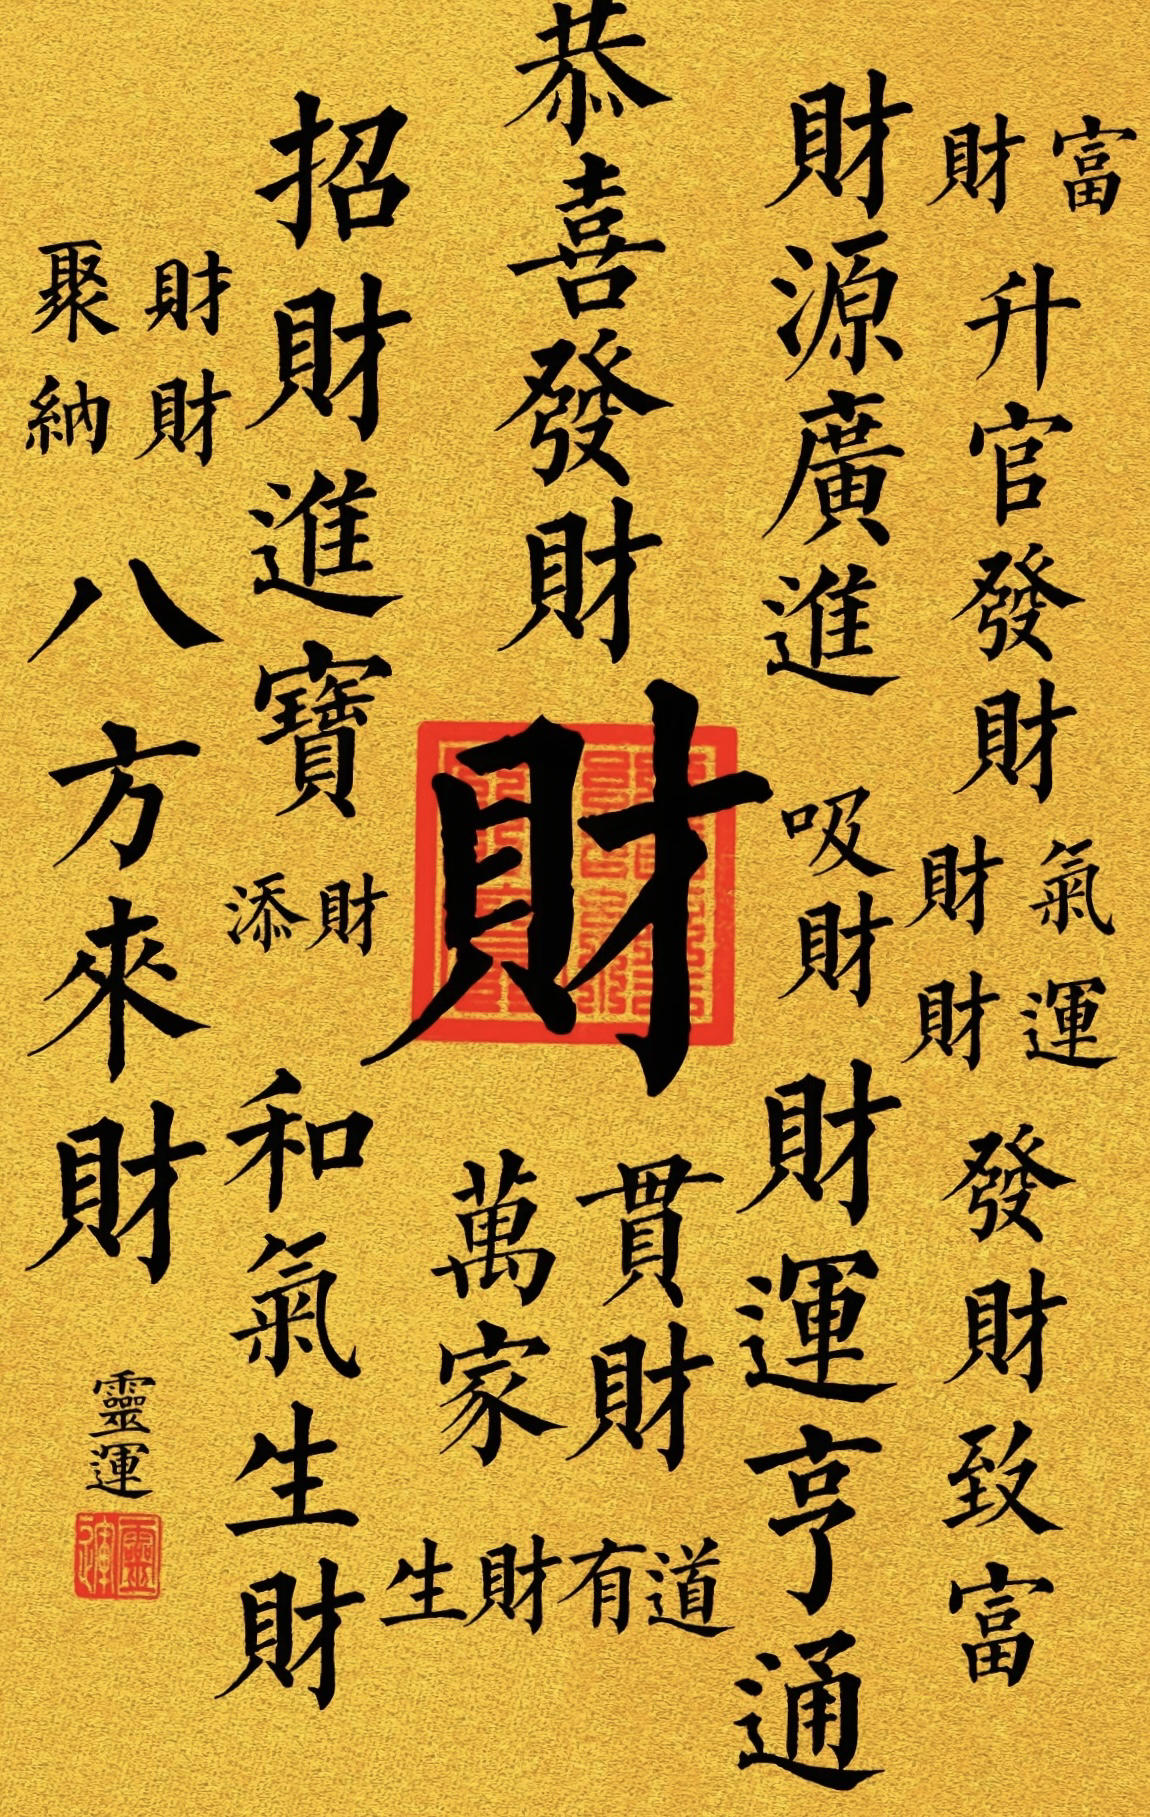 恭喜發財
財源廣進
財富
升官發財
財氣
財運
發財致富
吸財
財運亨通
招財進寶
聚財
納財
八方來財
添財
財
和氣生財
萬貫
家財
生財有道
靈運
靈運